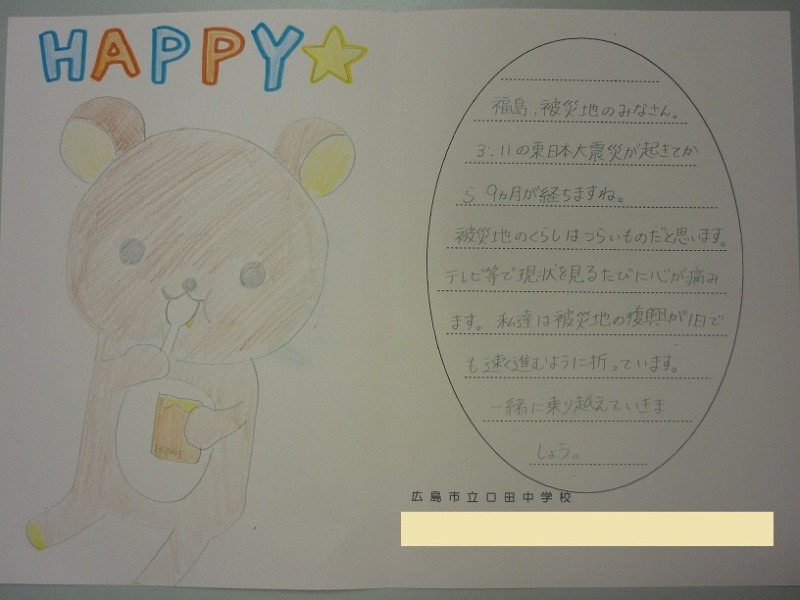 HAPPY☆
福島、被災地のみなさん。
3.11の東日本大震災が起きてか
ら9ヵ月が経ちますね。
被災地のくらしはつらいものだと思います。
テレビ等で現状を見るたびに心が痛み
ます。私達は被災地の復興が1日で
も速く進むように祈っています。
一緒に乗り越えていきま
しょう。
広島市立口田中学校